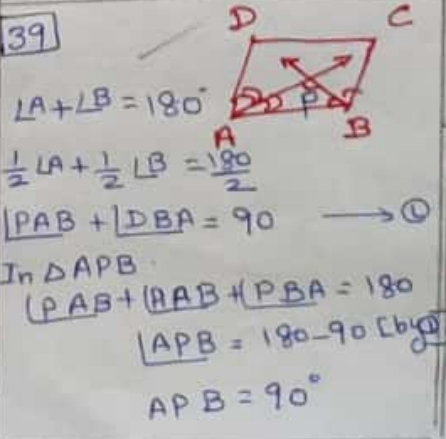 39
D C
∠A+∠B=180°
P
A B
1/2 ∠A+1/2 ∠B = 180/2
∠PAB + ∠DBA = 90 → ①
In △APB.
∠PAB+∠AAB+∠PBA = 180
∠APB = 180-90 [by ①]
APB = 90°